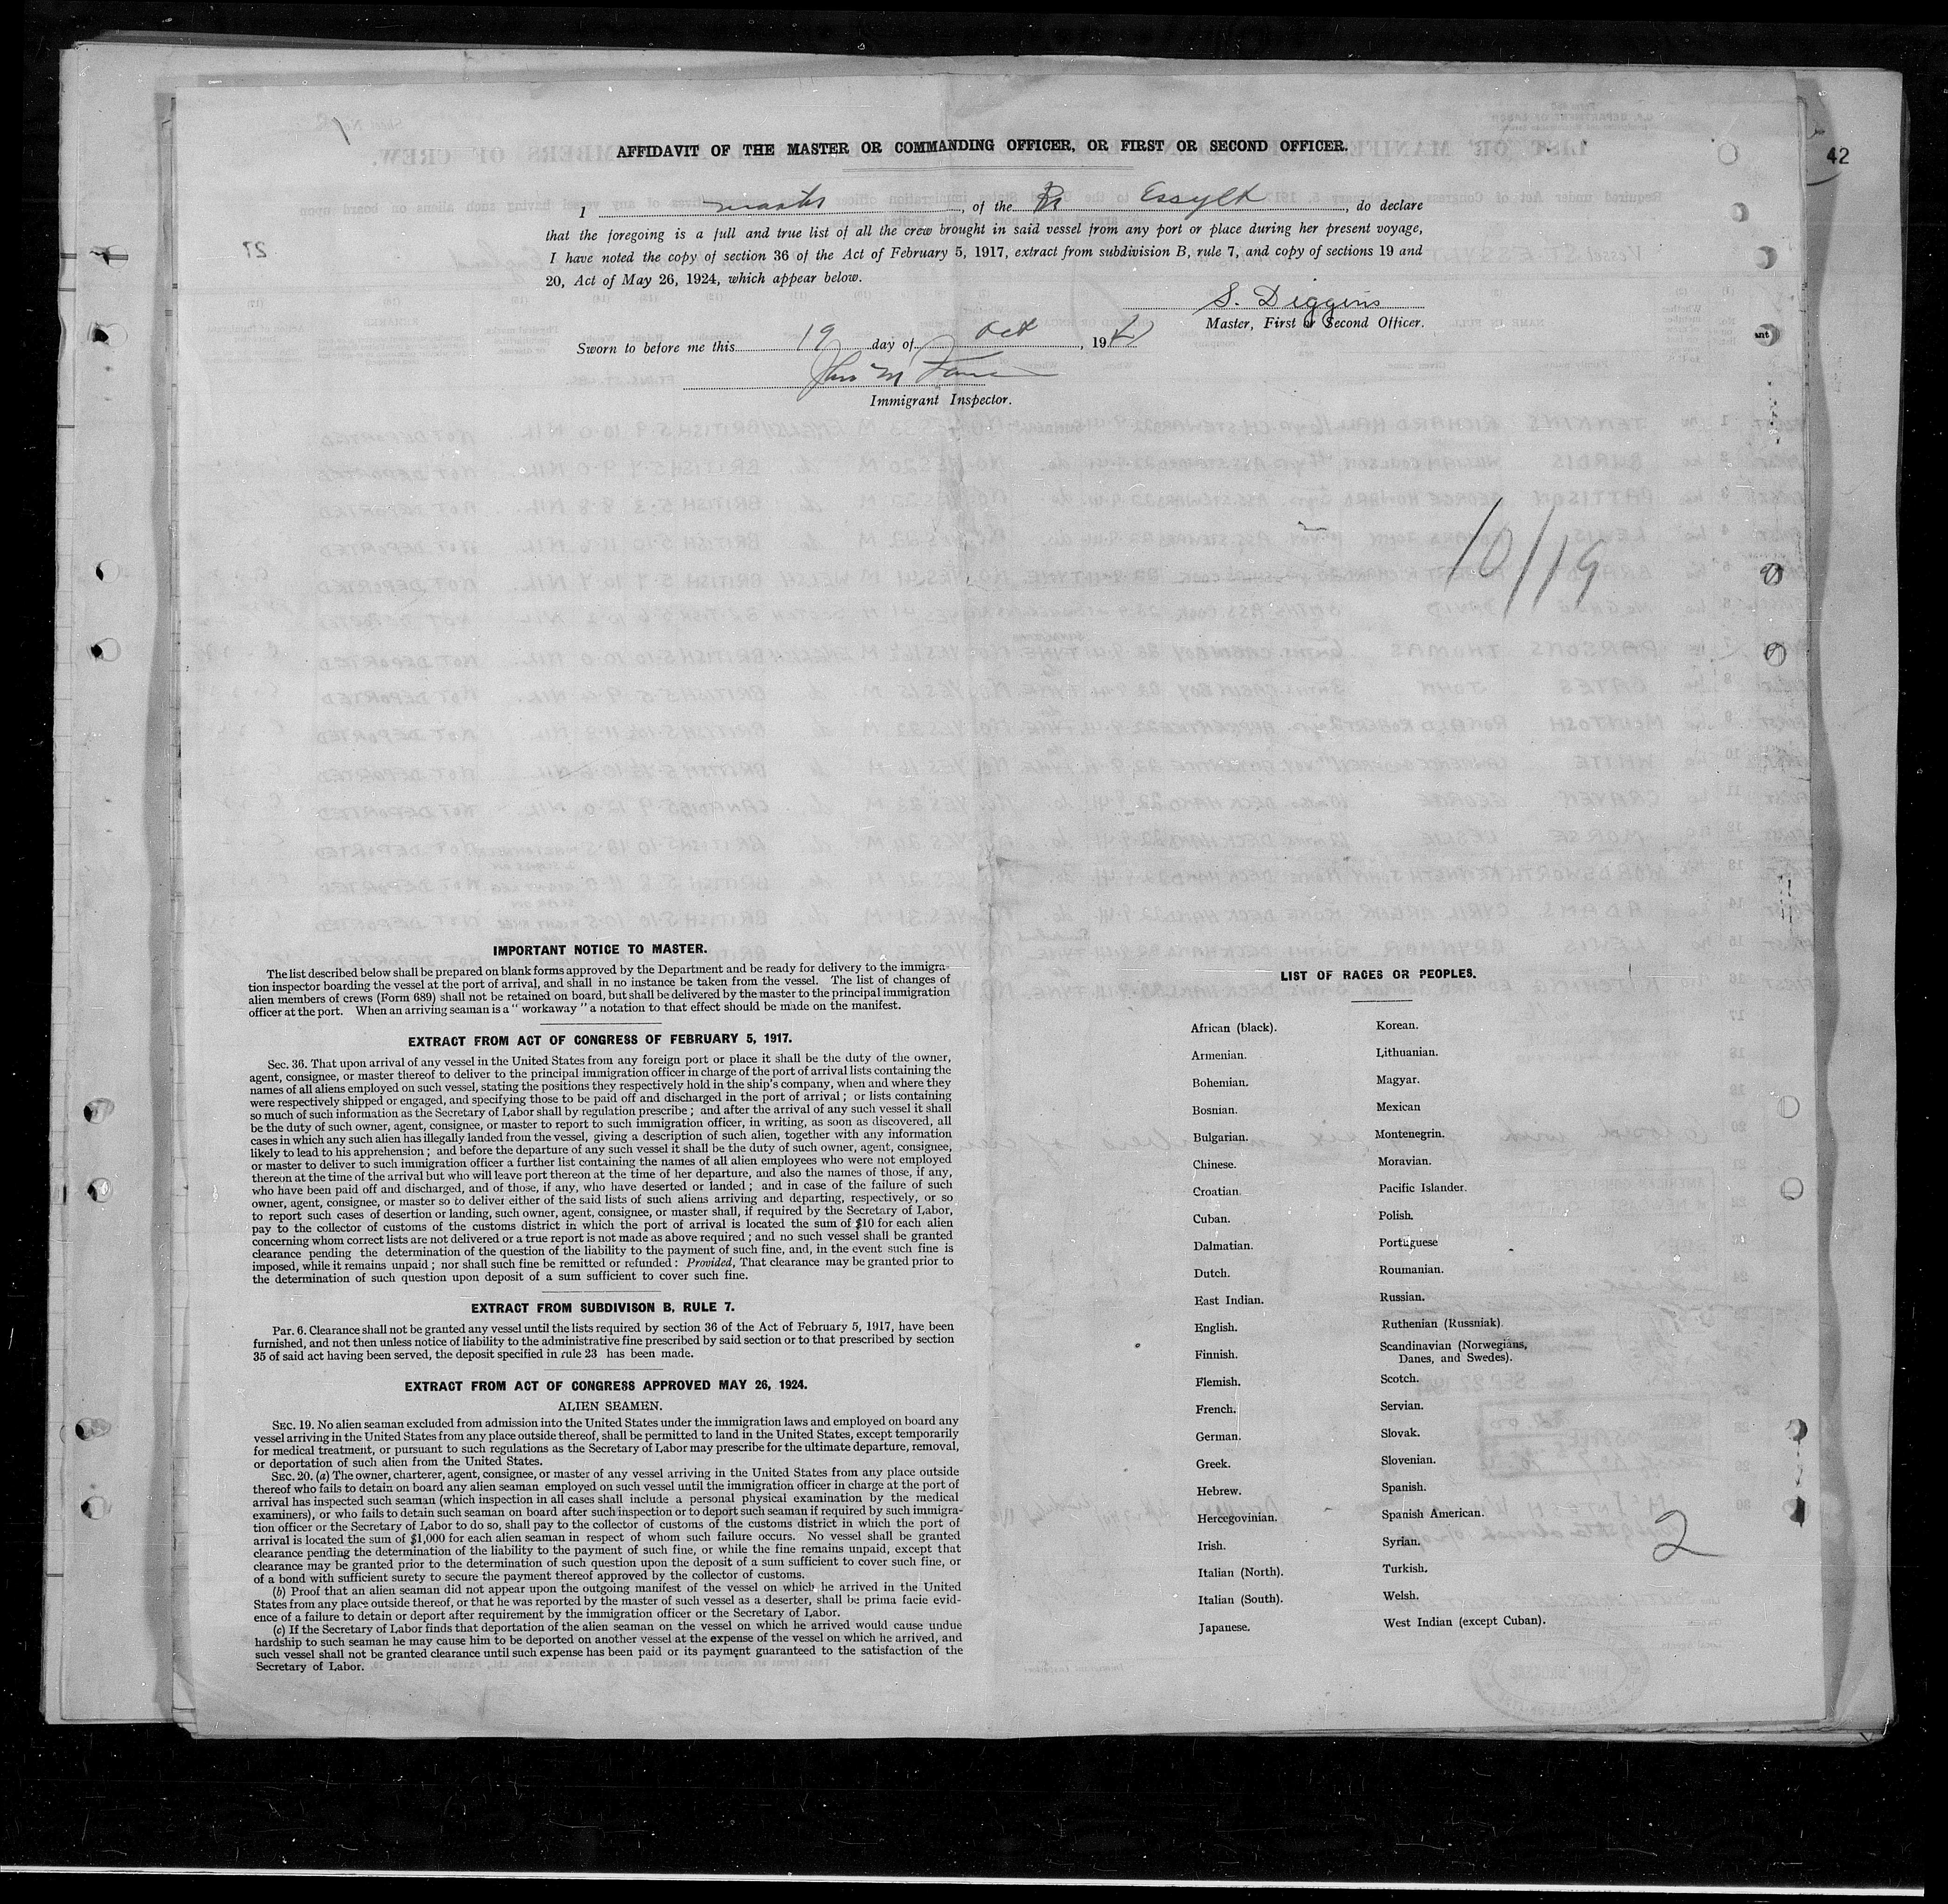 AFFIDAVIT OF THE MASTER OR COMMANDING OFFICER, OR FIRST OR SECOND OFFICER.
42
I master, of the Br Essylt, do declare
that the foregoing is a full and true list of all the crew brought in said vessel from any port or place during her present voyage,
I have noted the copy of section 36 of the Act of February 5, 1917, extract from subdivision B, rule 7, and copy of sections 19 and
20, Act of May 26, 1924, which appear below.
S. Diggins
Master, First or Second Officer.
Sworn to before me this 19 day of Oct, 1941
Immigrant Inspector.
10/19
IMPORTANT NOTICE TO MASTER.
The list described below shall be prepared on blank forms approved by the Department and be ready for delivery to the immigra-
tion inspector boarding the vessel at the port of arrival, and shall in no instance be taken from the vessel. The list of changes of
alien members of crews (Form 689) shall not be retained on board, but shall be delivered by the master to the principal immigration
officer at the port. When an arriving seaman is a "workaway" a notation to that effect should be made on the manifest.
EXTRACT FROM ACT OF CONGRESS OF FEBRUARY 5, 1917.
Sec. 36. That upon arrival of any vessel in the United States from any foreign port or place it shall be the duty of the owner,
agent, consignee, or master thereof to deliver to the principal immigration officer in charge of the port of arrival lists containing the
names of all aliens employed on such vessel, stating the positions they respectively hold in the ship's company, when and where they
were respectively shipped or engaged, and specifying those to be paid off and discharged in the port of arrival; or lists containing
so much of such information as the Secretary of Labor shall by regulation prescribe; and after the arrival of any such vessel it shall
be the duty of such owner, agent, consignee, or master to report to such immigration officer, in writing, as soon as discovered, all
cases in which any such alien has illegally landed from the vessel, giving a description of such alien, together with any information
likely to lead to his apprehension; and before the departure of any such vessel it shall be the duty of such owner, agent, consignee,
or master to deliver to such immigration officer a further list containing the names of all alien employees who were not employed
thereon at the time of the arrival but who will leave port thereon at the time of her departure, and also the names of those, if any,
who have been paid off and discharged, and of those, if any, who have deserted or landed; and in case of the failure of such
owner, agent, consignee, or master so to deliver either of the said lists of such aliens arriving and departing, respectively, or so
to report such cases of desertion or landing, such owner, agent, consignee, or master shall, if required by the Secretary of Labor,
pay to the collector of customs of the customs district in which the port of arrival is located the sum of $10 for each alien
concerning whom correct lists are not delivered or a true report is not made as above required; and no such vessel shall be granted
clearance pending the determination of the question of the liability to the payment of such fine, and, in the event such fine is
imposed, while it remains unpaid; nor shall such fine be remitted or refunded: Provided, That clearance may be granted prior to
the determination of such question upon deposit of a sum sufficient to cover such fine.
EXTRACT FROM SUBDIVISON B, RULE 7.
Par. 6. Clearance shall not be granted any vessel until the lists required by section 36 of the Act of February 5, 1917, have been
furnished, and not then unless notice of liability to the administrative fine prescribed by said section or to that prescribed by section
35 of said act having been served, the deposit specified in rule 23 has been made.
EXTRACT FROM ACT OF CONGRESS APPROVED MAY 26, 1924.
ALIEN SEAMEN.
SEC. 19. No alien seaman excluded from admission into the United States under the immigration laws and employed on board any
vessel arriving in the United States from any place outside thereof, shall be permitted to land in the United States, except temporarily
for medical treatment, or pursuant to such regulations as the Secretary of Labor may prescribe for the ultimate departure, removal,
or deportation of such alien from the United States.
SEC. 20. (a) The owner, charterer, agent, consignee, or master of any vessel arriving in the United States from any place outside
thereof who fails to detain on board any alien seaman employed on such vessel until the immigration officer in charge at the port of
arrival has inspected such seaman (which inspection in all cases shall include a personal physical examination by the medical
examiners), or who fails to detain such seaman on board after such inspection or to deport such seaman if required by such immigra-
tion officer or the Secretary of Labor to do so, shall pay to the collector of customs of the customs district in which the port of
arrival is located the sum of $1,000 for each alien seaman in respect of whom such failure occurs. No vessel shall be granted
clearance pending the determination of the liability to the payment of such fine, or while the fine remains unpaid, except that
clearance may be granted prior to the determination of such question upon the deposit of a sum sufficient to cover such fine, or
of a bond with sufficient surety to secure the payment thereof approved by the collector of customs.
(b) Proof that an alien seaman did not appear upon the outgoing manifest of the vessel on which he arrived in the United
States from any place outside thereof, or that he was reported by the master of such vessel as a deserter, shall be prima facie evid-
ence of a failure to detain or deport after requirement by the immigration officer or the Secretary of Labor.
(c) If the Secretary of Labor finds that deportation of the alien seaman on the vessel on which he arrived would cause undue
hardship to such seaman he may cause him to be deported on another vessel at the expense of the vessel on which he arrived, and
such vessel shall not be granted clearance until such expense has been paid or its payment guaranteed to the satisfaction of the
Secretary of Labor.
LIST OF RACES OR PEOPLES.
African (black).
Armenian.
Bohemian.
Bosnian.
Bulgarian.
Chinese.
Croatian.
Cuban.
Dalmatian.
Dutch.
East Indian.
English.
Finnish.
Flemish.
French.
German.
Greek.
Hebrew.
Hercegovinian.
Irish.
Italian (North).
Italian (South).
Japanese.
Korean.
Lithuanian.
Magyar.
Mexican
Montenegrin.
Moravian.
Pacific Islander.
Polish.
Portuguese
Roumanian.
Russian.
Ruthenian (Russniak).
Scandinavian (Norwegians,
Danes, and Swedes).
Scotch.
Servian.
Slovak.
Slovenian.
Spanish.
Spanish American.
Syrian.
Turkish.
Welsh.
West Indian (except Cuban).
2